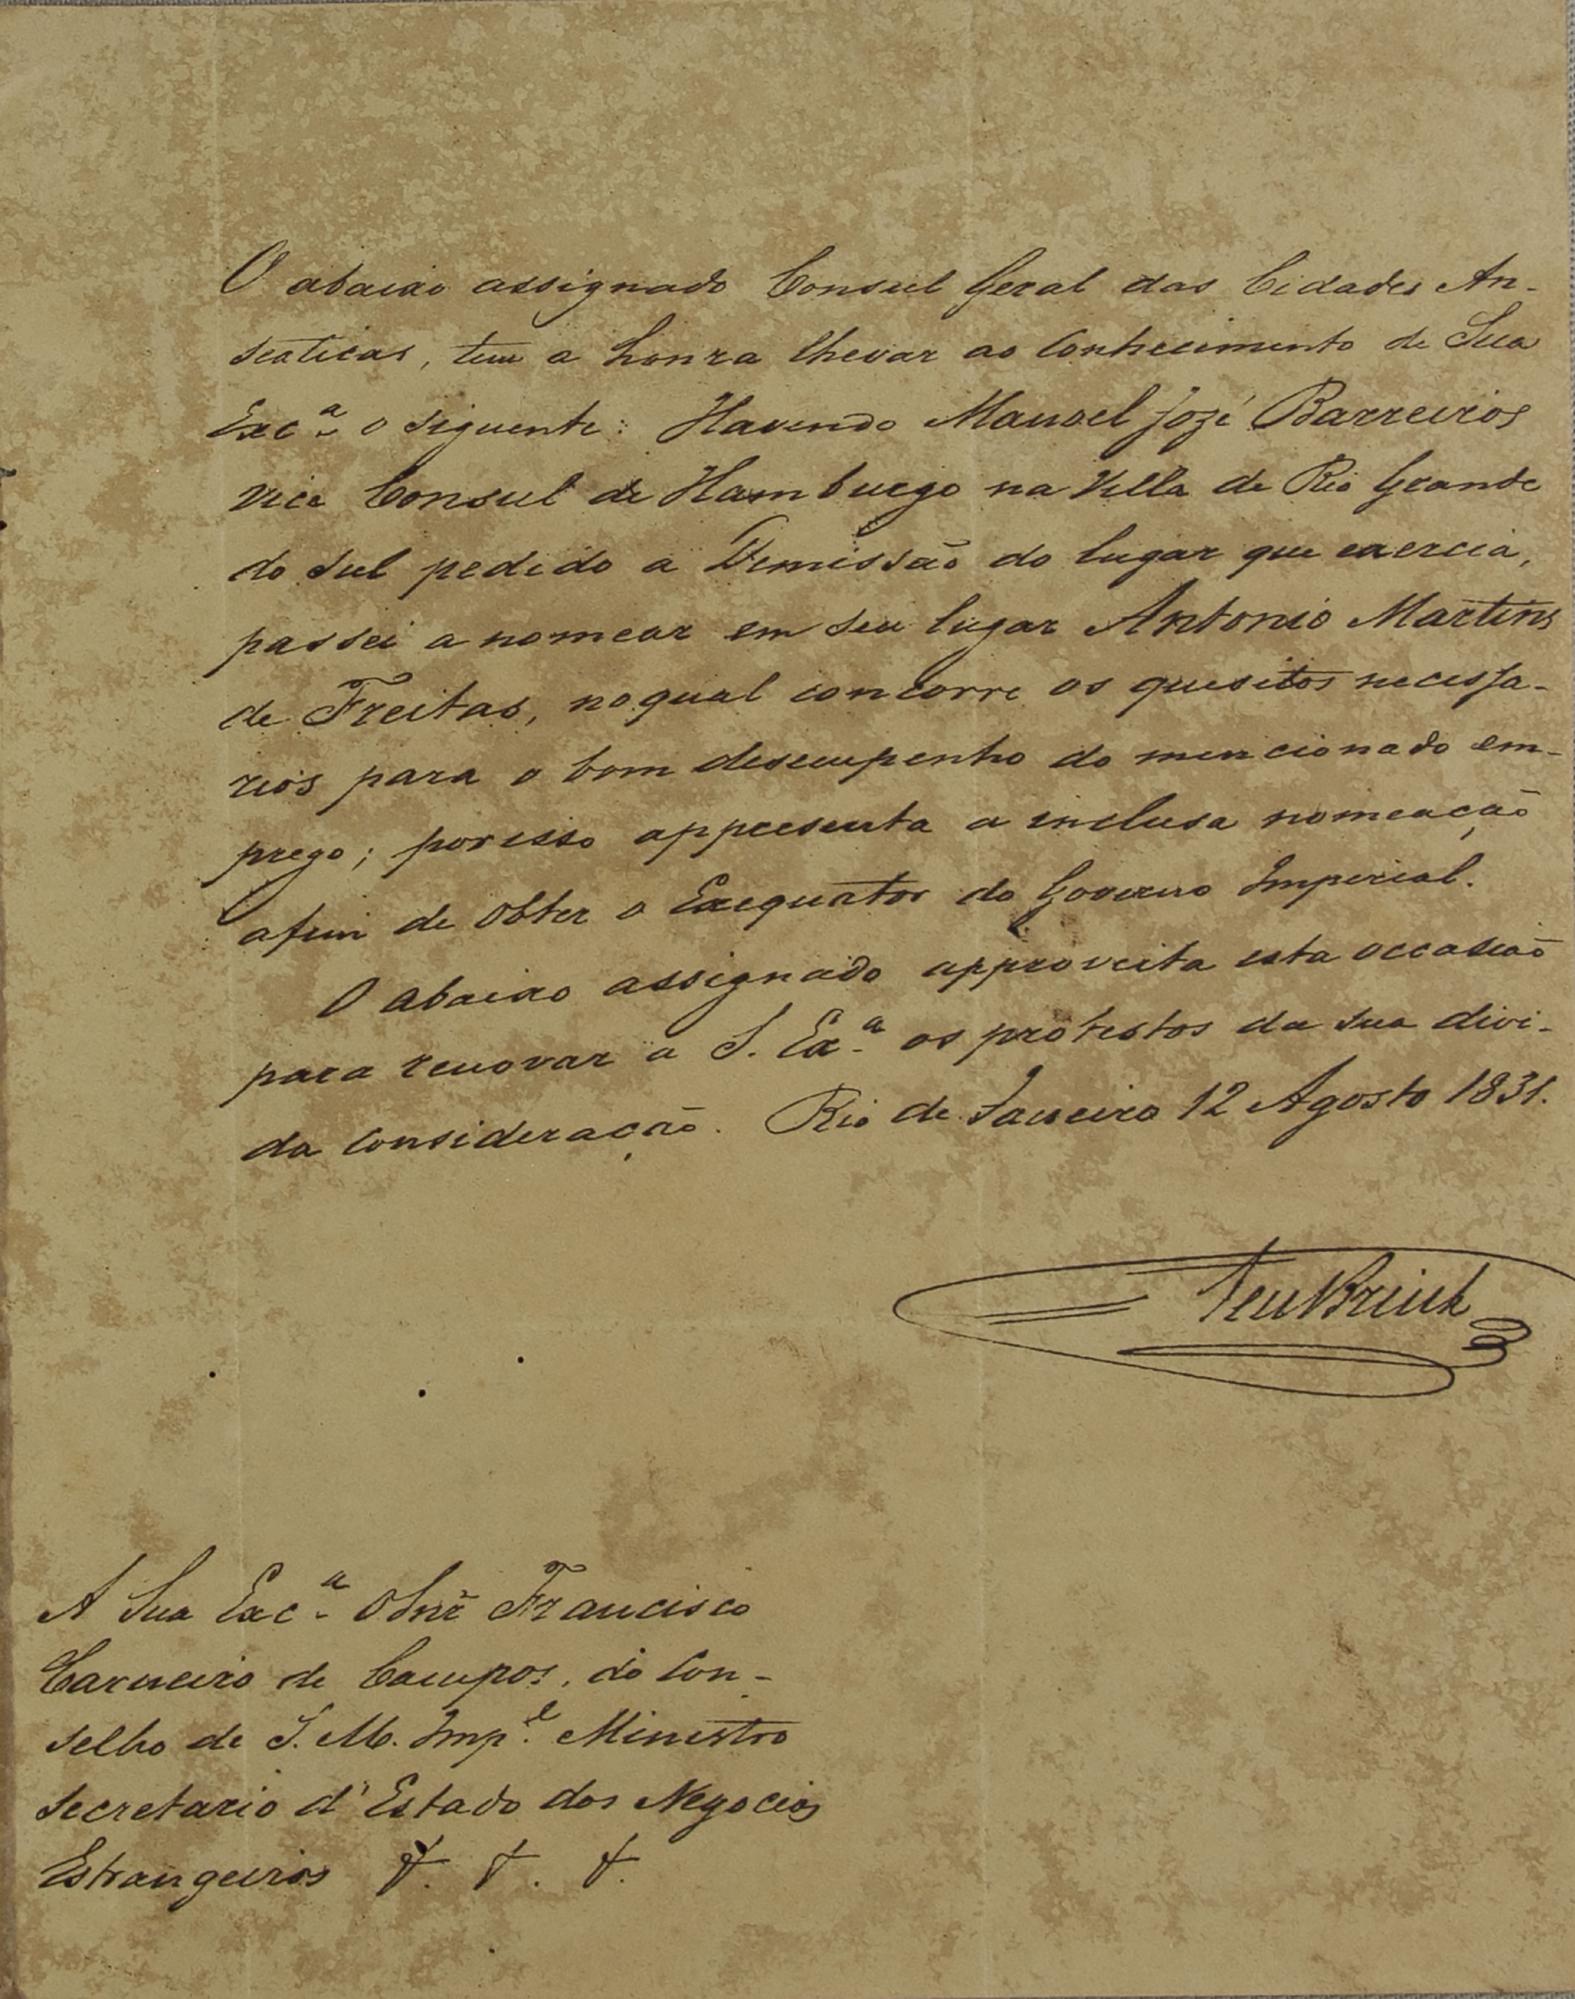 O abaixo assignado Consul Geral das Cidades An-
seaticas, tem a honra lhevar ao Conhecimento de Sua
Exc.ª o siguente: Havendo Manoel Jozé Barreiros
Vice Consul de Hamburgo na Villa de Rio Grande
do Sul pedido a Demissão do lugar que exercia,
passei a nomear em seu lugar Antonio Martins
de Freitas, no qual concorre os quesitos necessa-
rios para o bom desempenho do mencionado em-
prego; por isso appresenta a inclusa nomeação
afim de obter o Exequator do Governo Imperial.
O abaixo assignado approveita esta occasião
para renovar a S. Ex.ª os protestos da sua divi-
da Consideração. Rio de Janeiro 12 Agosto 1831.
Ten Brink
A Sua Exc.ª O Snr Francisco
Carneiro de Campos, do Con-
selho de S. M. Imp.l Ministro
Secretario d'Estado dos Negocios
Estrangeiros &. &. &.